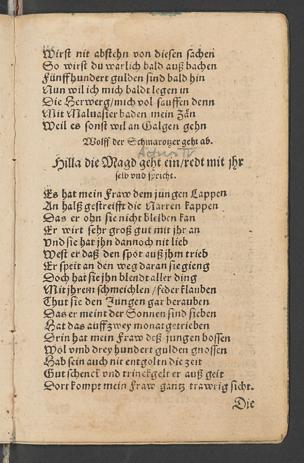 Wirst nit abstehn von diesen sachen
So wirst du warlich bald auß bachen
Fünffhundert gulden sind bald hin
Nun wil ich mich baldt legen in
Die Herwerg/mich vol sauffen denn
Mit Malvasier baden mein Zän
Weil es sonst wil an Galgen gehn
Wolff der Schmarotzer geht ab.
Hilla die Magd geht ein/redt mit jhr
selb vnd spricht.
Es hat mein Fraw dem jungen Lappen
An halß gestreifft die Narren kappen
Das er ohn sie nicht bleiben kan
Er wirt sehr groß gut mit jhr an
Vnd sie hat jhn dannoch nit lieb
West er daß den spot auß jhm trieb
Er speit an den weg daran sie gieng
Doch hat sie jhn blendt aller ding
Mit jhrem schmeichlen/federklauben
Thut sie den Jungen gar berauben
Das er meint der Sonnen sind sieben
Hat das auff zwey monat getrieben
Drin hat mein Fraw deß jungen bossen
Wol vmb drey hundert gulden gnossen
Hab sein auch nit entgolten die zeit
Gut schenck vnd trinckgelt er auß geit
Dort kompt mein Fraw gantz trawrig sicht.
Die